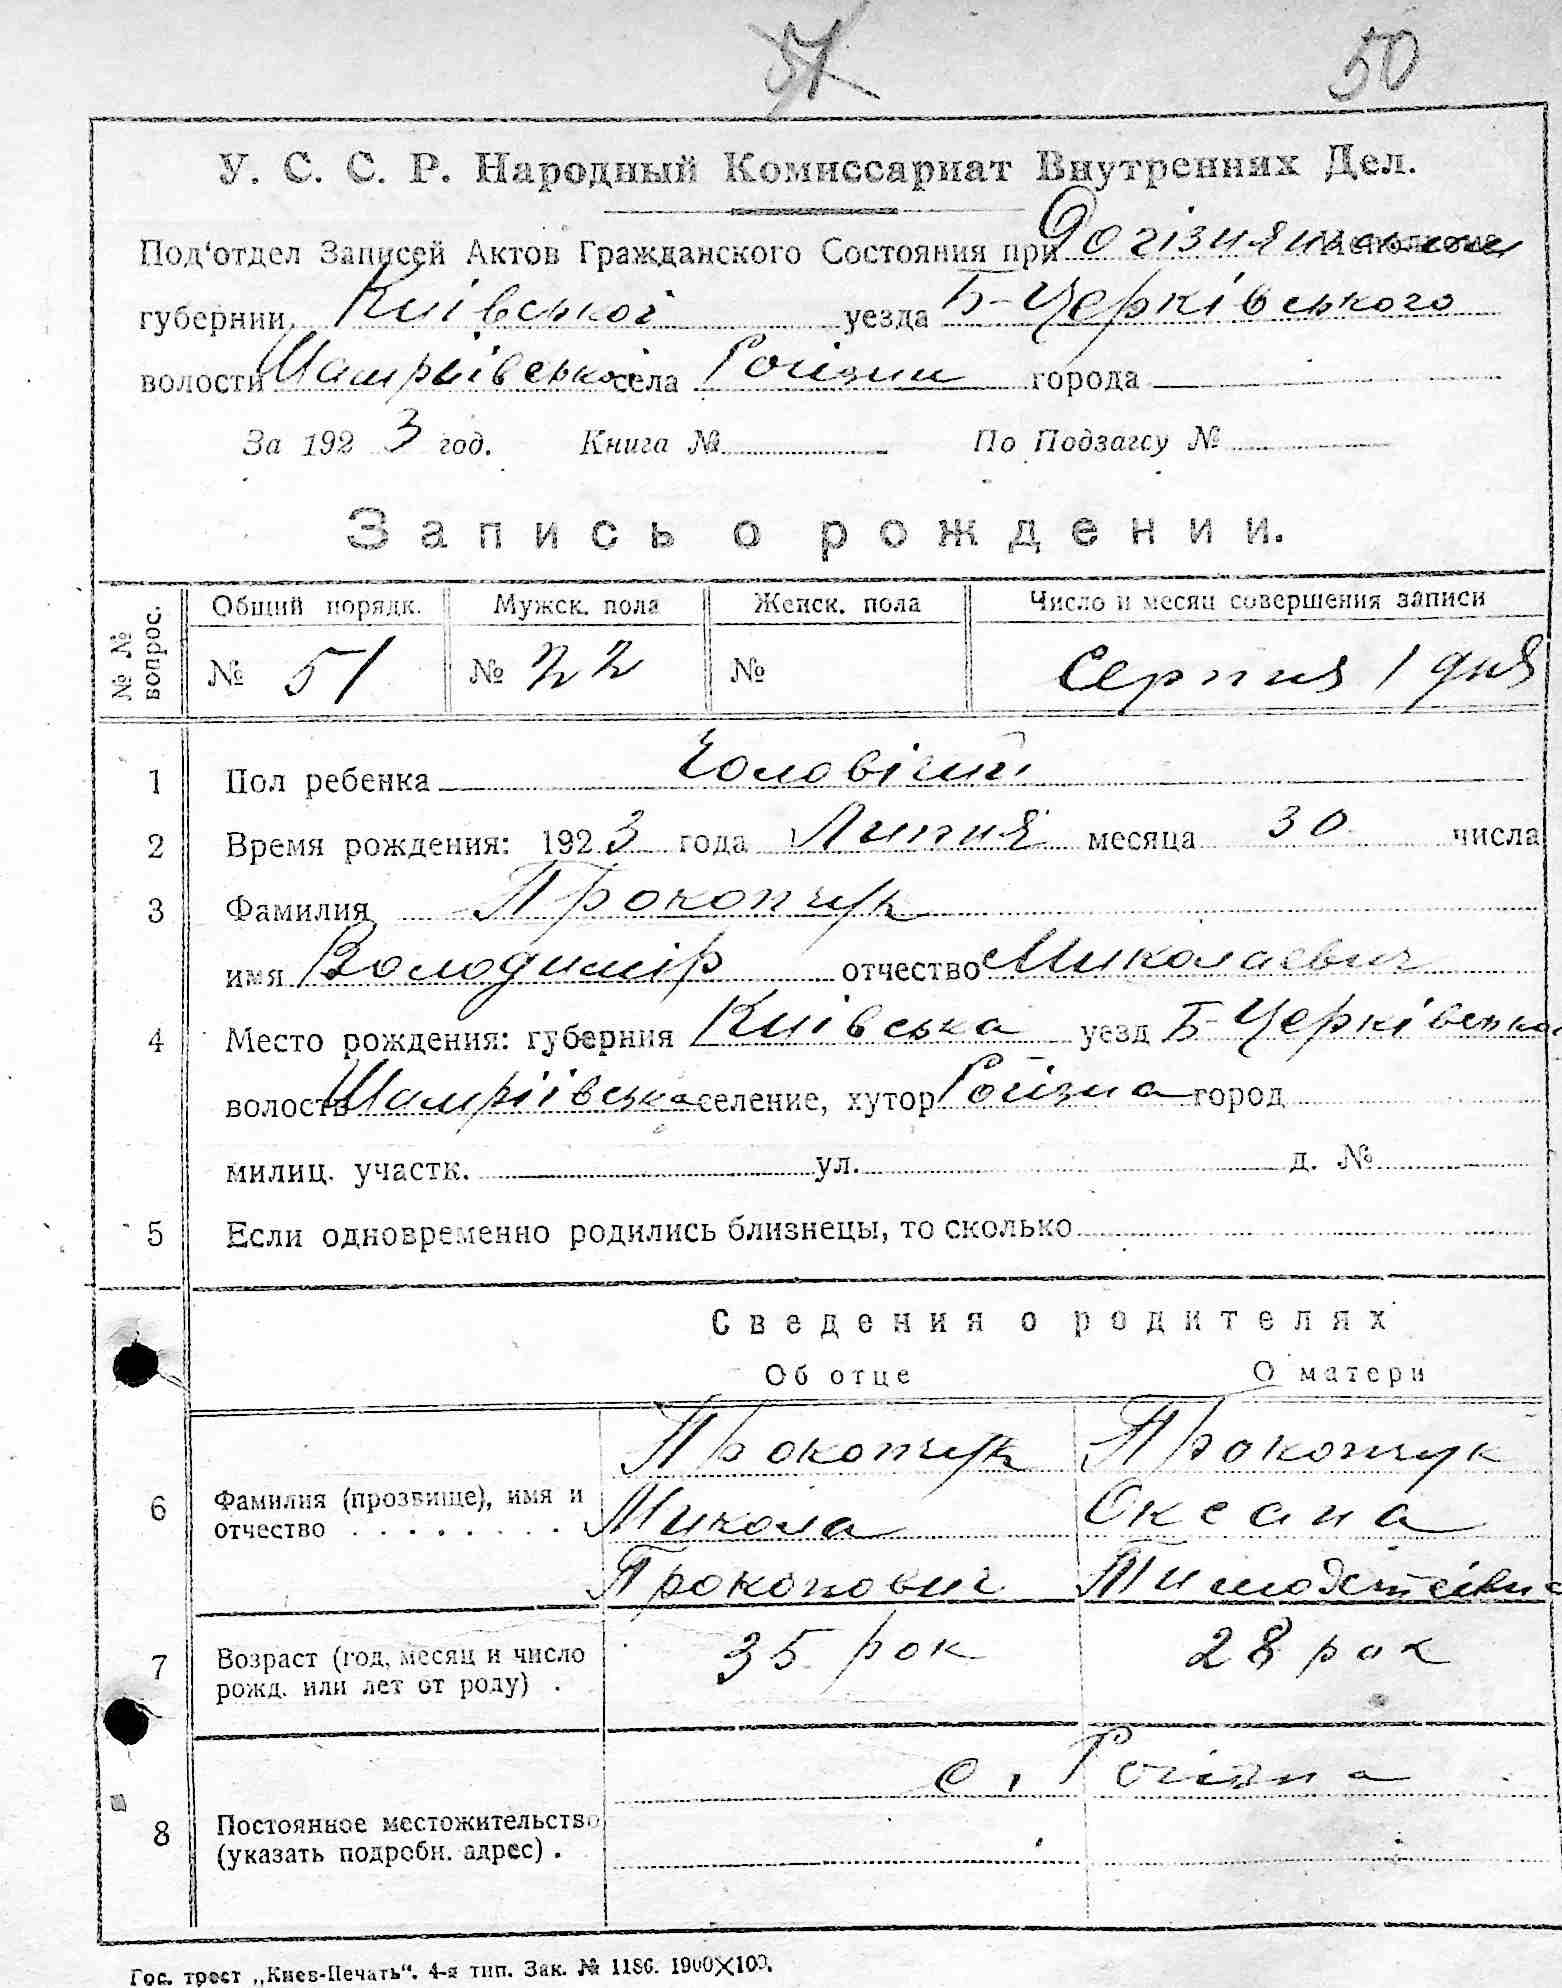 50
У. С. С. Р. Народный Комиссариат Внутренних Дел.
Под‘отдел Записей Актов Гражданского Состояния при
губернии Київської уезда Б-Черківського
волости Шамраївської села Рогізни города
За 192 3 год. Книга № По Подзагсу №
Запись о рождении.
№ № вопрос. Общий порядк. Мужск. пола Женск. пола Число и месяц совершения записи
№ 51 № 22 № Серпня 1 дня
1 Пол ребенка Чоловічий
2 Время рождения: 192 3 года Липня месяца 30 числа
3 Фамилия Прокопчук
имя Володимір отчество Миколаевич
4 Место рождения: губерния Київська уезд Б-Черківська
волость селение, хутор Рогізна город
милиц. участк. ул. д. №
5 Если одновременно родились близнецы, то сколько
Сведения о родителях
Об отце О матери
Прокопчук Прокопчук
6 Фамилия (прозвище), имя и отчество . . . . . . . . Микола Оксана
Прокопович
7 Возраст (год, месяц и число рожд. или лет от роду) . 35 рок 28 рок
с. Рогізна
8 Постоянное местожительство (указать подробн. адрес) .
Гос. трест „Киев-Печать“. 4-я тип. Зак. № 1186. 1900×100.